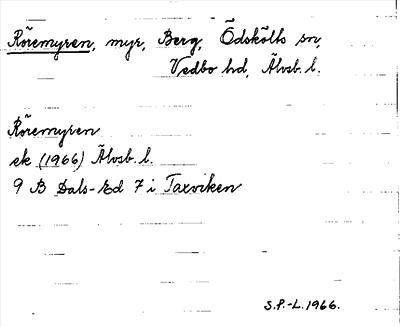 Röremyren, myr, Berg, Ödskölts sn,
Vedbo hd, Älvsb. l.
Röremyren
ek (1966) Älvsb. l.
9 B Dals-Ed 7 i Taxviken
S.P.-L. 1966.